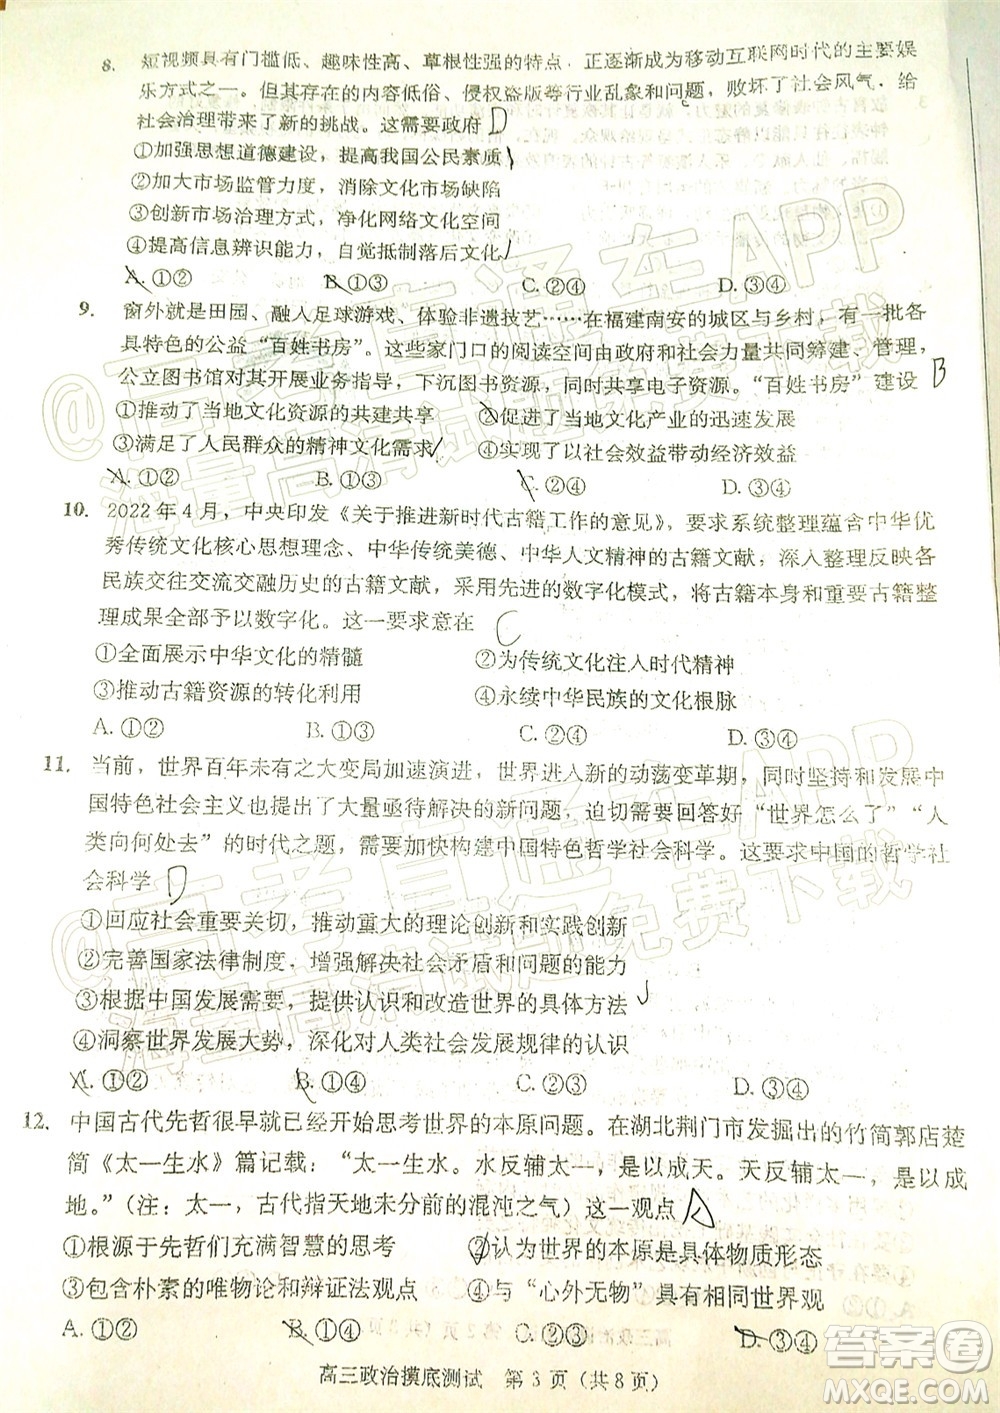 8. 短视频具有门槛低、趣味性高、草根性强的特点，正逐渐成为移动互联网时代的主要娱
乐方式之一。但其存在的内容低俗、侵权盗版等行业乱象和问题，败坏了社会风气，给
社会治理带来了新的挑战。这需要政府 D
①加强思想道德建设，提高我国公民素质
②加大市场监管力度，消除文化市场缺陷
③创新市场治理方式，净化网络文化空间
④提高信息辨识能力，自觉抵制落后文化
A. ①② B. ①④ C. ②③ D. ③④
9. 窗外就是田园、融入足球游戏、体验非遗技艺……在福建南安的城区与乡村，有一批各
具特色的公益“百姓书房”。这些家门口的阅读空间由政府和社会力量共同筹建、管理，
公立图书馆对其开展业务指导，下沉图书资源，同时共享电子资源。“百姓书房”建设 B
①推动了当地文化资源的共建共享 ②促进了当地文化产业的迅速发展
③满足了人民群众的精神文化需求 ④以社会效益带动经济效益
A. ①② B. ①③ C. ②④ D. ③④
10. 2022年4月，中央印发《关于推进新时代古籍工作的意见》，要求系统整理蕴含中华优
秀传统文化核心思想理念、中华传统美德、中华人文精神的古籍文献，深入整理反映各
民族交往交流交融历史的古籍文献，采用先进的数字化模式，将古籍本身和重要古籍整
理成果全部予以数字化。这一要求意在 C
①全面展示中华文化的精髓 ②为传统文化注入时代精神
③推动古籍资源的转化利用 ④永续中华民族的文化根脉
A. ①② B. ①③ C. ②④ D. ③④
11. 当前，世界百年未有之大变局加速演进，世界进入新的动荡变革期，同时坚持和发展中
国特色社会主义提出了大量亟待解决的新问题，迫切需要回答好“世界怎么了”“人
类向何处去”的时代之题，需要加快构建中国特色哲学社会科学。这要求中国的哲学社
会科学 D
①回应社会重要关切，推动重大的理论创新和实践创新
②完善国家法律制度，增强解决社会矛盾和问题的能力
③根据中国发展需要，提供认识和改造世界的具体方法
④洞察世界发展大势，深化对人类社会发展规律的认识
A. ①② B. ①④ C. ②③ D. ③④
12. 中国古代先哲很早就已经开始思考世界的本原问题。在湖北荆门市发掘出的竹简郭店楚
简《太一生水》篇记载：“太一生水。水反辅太一，是以成天。天反辅太一，是以成
地。”（注：太一，古代指天地未分前的混沌之气）这一观点
①根源于先哲们充满智慧的思考 ②认为世界的本原是具体物质形态
③包含朴素的唯物论和辩证法观点 ④与“心外无物”具有相同世界观
A. ①② B. ①④ C. ②③ D. ③④
高三政治摸底测试 第3页（共8页）
@高考直通车APP
海量高清试题免费下载
@高考直通车APP
海量高清试题免费下载
答案圈
MXQE.COM